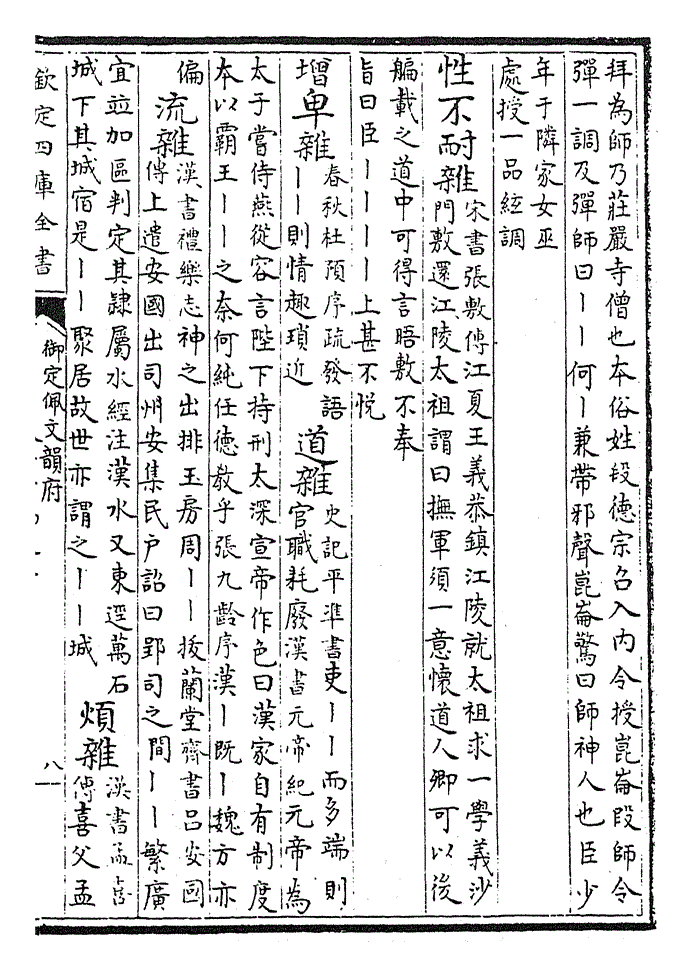 拜為師乃莊嚴寺僧也本俗姓段德宗召入内令授崑崙段師令
彈一調及彈師曰丨丨何丨兼帶邪聲崑崙驚曰師神人也臣少
年于隣家女巫
處授一品絃調
性不耐雜
宋書張敷傳江夏王義恭鎮江陵就太祖求一學義沙
門敷還江陵太祖謂曰撫軍須一意懷道人卿可以後
艑載之道中可得言晤敷不奉
旨曰臣丨丨丨丨上甚不悦
增
卑雜
春秋杜預序疏發語
丨丨則情趣瑣近
道雜
史記平準書吏丨丨而多端則
官職耗廢漢書元帝紀元帝為
太子嘗侍燕從容言陛下持刑太深宣帝作色曰漢家自有制度
本以霸王丨丨之奈何純任德教乎張九齡序漢丨既丨魏方亦
偏
流雜
漢書禮樂志神之出排玉房周丨丨拔蘭堂齊書吕安國
傳上遣安國出司州安集民户詔曰郢司之間丨丨繁廣
宜並加區判定其隸屬水經注漢水又東逕萬石
城下其城宿是丨丨聚居故世亦謂之丨丨城
煩雜
漢書孟喜
傳喜父孟
欽定四庫全書
御定佩文韻府
八